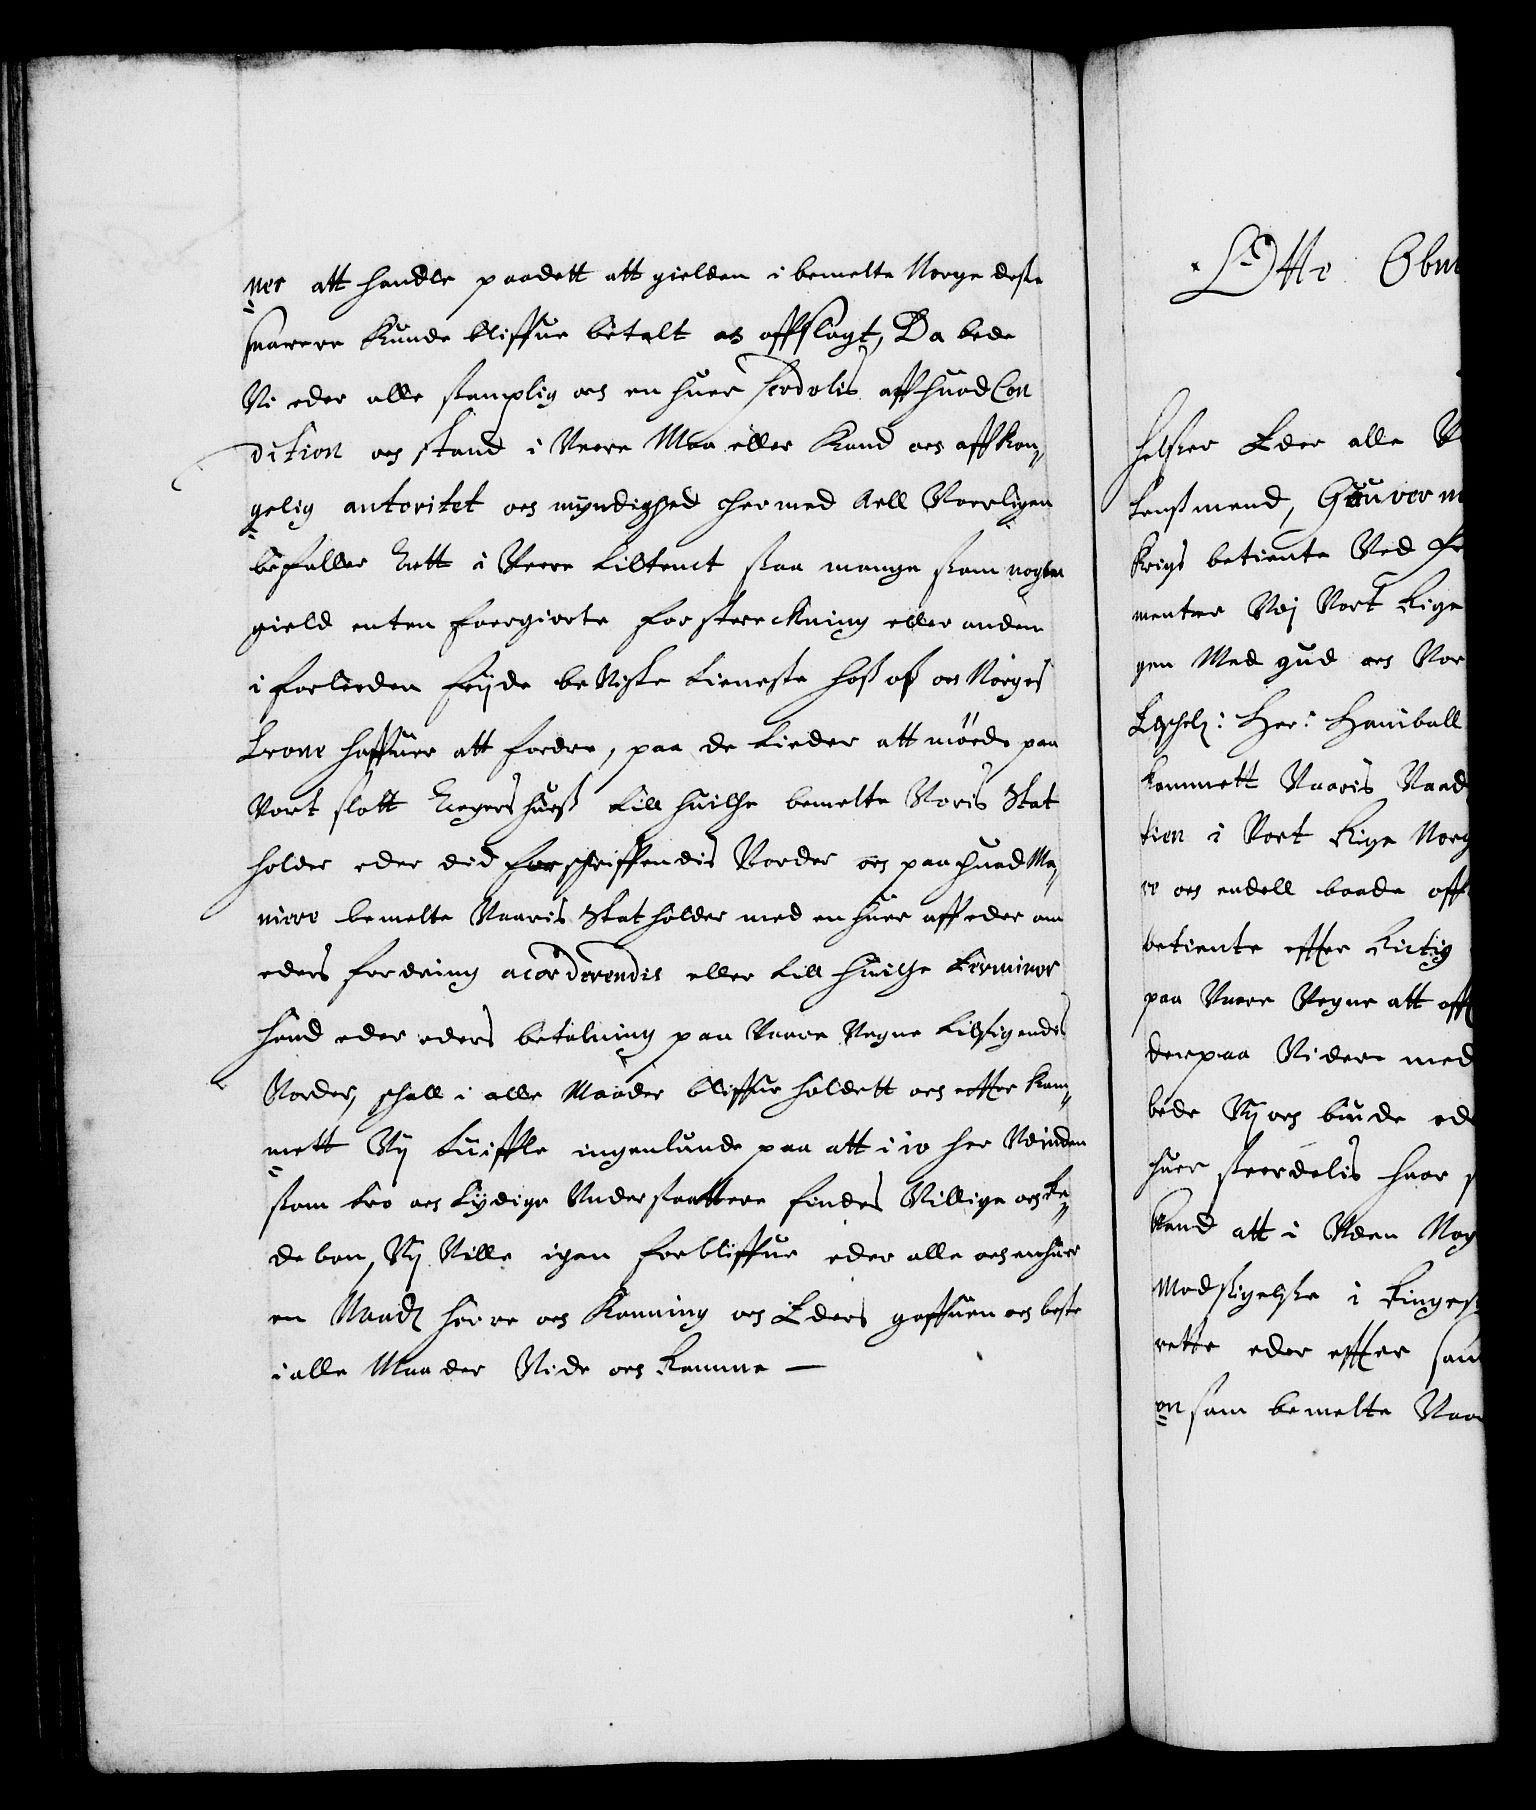 ner att handle paadett att gielden i bemelte Norge deste
snarere Kunde bliffue betalt og afflagt, Da bede
Vi eder alle samptlig och en huer serdelis aff huad Con
dition och stand i Veere Maa eller Kand och aff Kon„
gelig autoritet och myndighed hermed Aell Voerligen
befaller Att i Veere tiltenct saa mange som nogen
gield enten foergiorte forstreckning eller anden
i forleeden feyde beviste tieneste hoß oß och Norges
Crone haffuer att fordre, paa de tieder att möede paa
Vort slott Aggershueß till huilche bemelte Voris Stat
holder eder did forschriffuendis Vorder och paa huad Ma„
niere bemelte Vaaris Statholder med en huer aff eder om
eders fordring acorderendis eller till huilche terminer
hand eder eders betalning paa Vaare Vegne tilsigendis
Vorder, schall i alle Maader bliffue holdett och efter kom„
mett Vij tuiffle ingenlunde paa att i io her Udinden
som tro och lydige Undersaattere findes Villige och be„
deben, Vij Ville igen forbliffue eder alle och enhuer
en Naadig herre och Konning och Eders gaffuen och beste
i alle Maader Vide och Ramme —
Otte
helser Eder alle
Lenßmend, Gouverne
Krigs betiente Ved
menter Vdj Vort Rige
gen Med gud och Vor
Her: Haniball
Kommett Vaaris Naad
tien i Vort Rige Norg
re och endell baade off
betiente effter Rictig
paa Vaare Vegne att aff
derpaa Videre med
bede Vij och biude ed
huer seerdelis huor
Kand att i Uden Nog
Modsigelse i Ringes
rette eder effter sam
on som bemelte Vaar